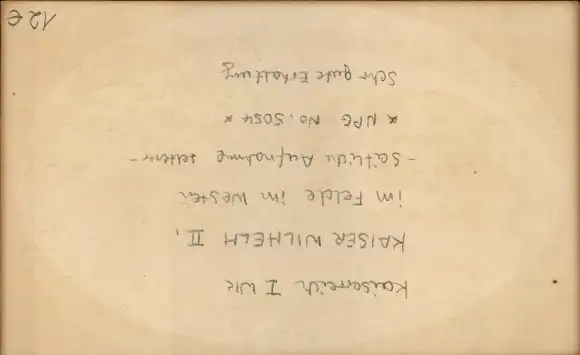 Kaiserreich I WK
KAISER WILHELM II,
im Felde im Westen
- Seitliche Aufnahme selten -
* NPG No. 5054 *
Sehr gute Erhaltung
12€